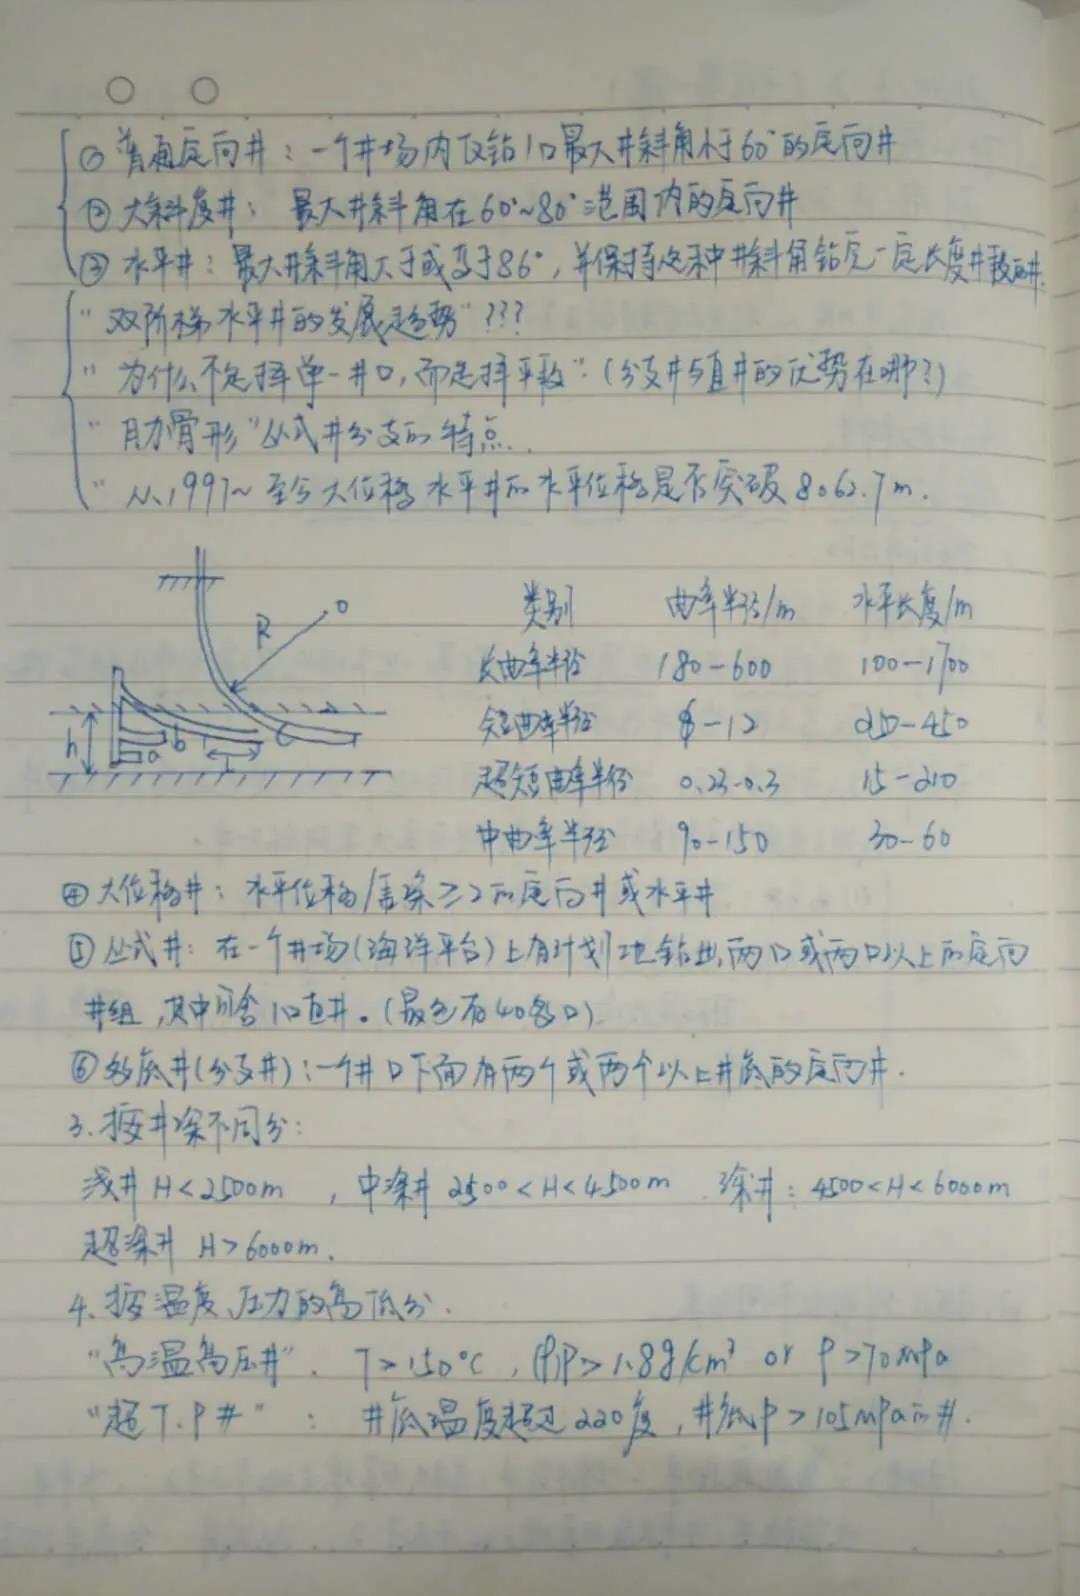 ① 普通定向井：一个井场内仅钻1口最大井斜角小于60°的定向井
② 大斜度井：最大井斜角在60°~80°范围内的定向井
③ 水平井：最大井斜角大于或等于86°，并保持这种井斜角钻完一定长度井段的井.
"双阶梯水平井的发展趋势"???
"为什么不选择单一井口，而选择平段"：(分支井与直井的优势在哪?)
"肋骨形"丛式井分支的特点.
"从1997~至今大位移水平井的水平位移是否突破8062.7m.
R o
h a b c L
类别 曲率半径/m 水平长度/m
长曲率半径 180-600 100-1700
短曲率半径 6-12 250-450
超短曲率半径 0.23-0.3 15-210
中曲率半径 90-150 30-60
④ 大位移井：水平位移/垂深≥2的定向井或水平井
⑤ 丛式井：在一个井场(海洋平台)上有计划地钻出两口或两口以上的定向
井组，其中可含1口直井。(最多有40多口)
⑥ 多底井(分支井)：一个井口下面有两个或两个以上井底的定向井.
3.按井深不同分：
浅井H<2500m ，中深井2500<H<4500m 深井：4500<H<6000m
超深井 H>6000m.
4.按温度、压力的高低分.
"高温高压井". T>150°C , (ρ)P>1.8g/cm³ or P>70mpa
"超T.P井"：井底温度超过220度，井底P>105mpa的井.